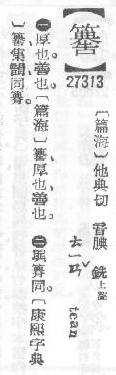 27313
〔篇海〕他典切 音腆 銑上聲
ㄊㄧㄢˇ tean
㊀厚也。善也。〔篇海〕、厚也、善也。㊁同。〔康熙字典
〕、集韻同。